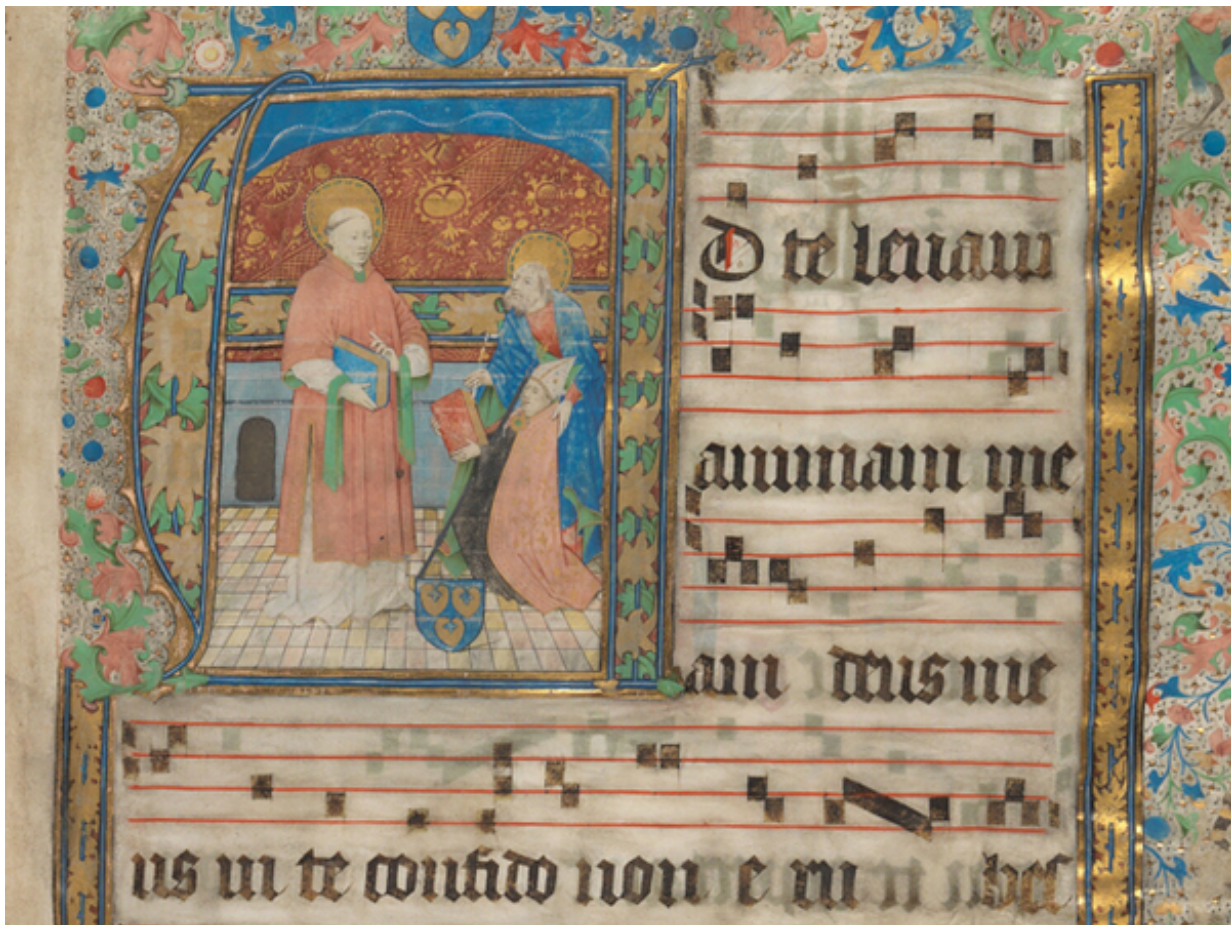 Ad te levam
animam me
am deus me
us in te confido non e ru bes